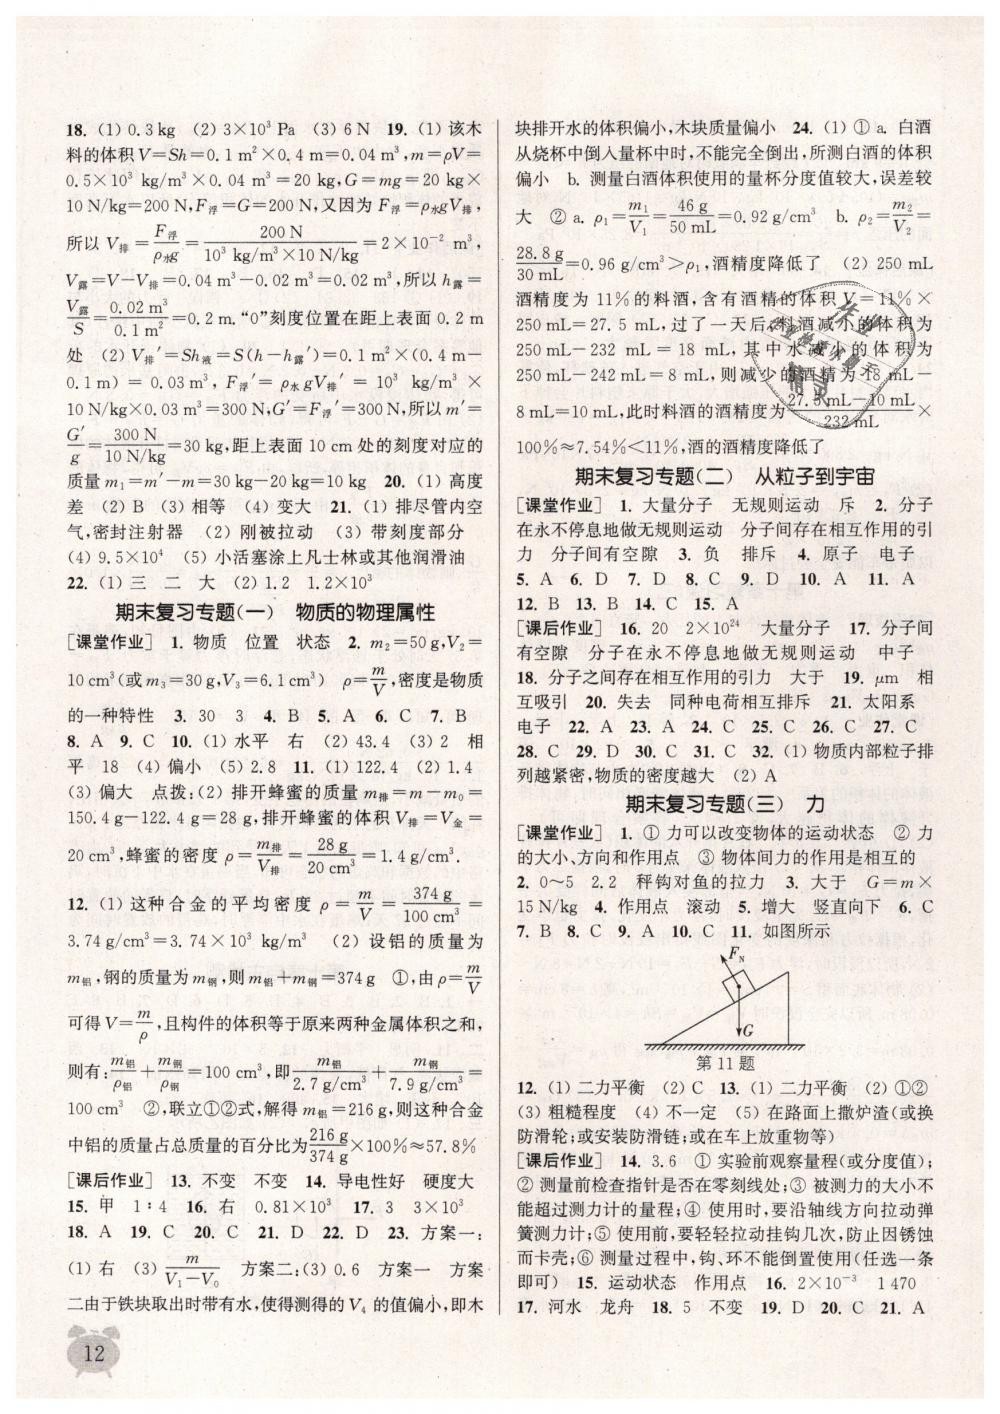 18. (1) 0.3 kg (2) 3×10³ Pa (3) 6 N 19. (1) 该木
料的体积 V=Sh=0.1 m²×0.4 m=0.04 m³,m=ρV=
0.5×10³ kg/m³×0.04 m³=20 kg,G=mg=20 kg×
10 N/kg=200 N,F浮=G=200 N,又因为 F浮=ρ水gV排,
所以 V排=F浮/ρ水g=200 N/(10³ kg/m³×10 N/kg)=2×10⁻² m³,
V露=V-V排=0.04 m³-0.02 m³=0.02 m³,所以 h露=
V露/S=0.02 m³/0.1 m²=0.2 m.“0”刻度位置在距上表面 0.2 m
处 (2) V排′=Sh液=S(h-h露′)=0.1 m²×(0.4 m-
0.1 m)=0.03 m³,F浮′=ρ水gV排′=10³ kg/m³×
10 N/kg×0.03 m³=300 N,G′=F浮′=300 N,所以 m′=
G′/g=300 N/(10 N/kg)=30 kg,距上表面 10 cm 处的刻度对应的
质量 m₁=m′-m=30 kg-20 kg=10 kg 20. (1) 高度
差 (2) B (3) 相等 (4) 变大 21. (1) 排尽管内空
气,密封注射器 (2) 刚被拉动 (3) 带刻度部分
(4) 9.5×10⁴ (5) 小活塞涂上凡士林或其他润滑油
22. (1) 三 二 大 (2) 1.2 1.2×10³
期末复习专题(一) 物质的物理属性
[课堂作业] 1. 物质 位置 状态 2. m₂=50 g,V₂=
10 cm³(或 m₃=30 g,V₃=6.1 cm³) ρ=m/V,密度是物质
的一种特性 3. 30 3 4. B 5. A 6. C 7. B
8. A 9. C 10. (1) 水平 右 (2) 43.4 (3) 2 相
平 18 (4) 偏小 (5) 2.8 11. (1) 122.4 (2) 1.4
(3) 偏大 点拨:(2) 排开蜂蜜的质量 m排=m-m₀=
150.4 g-122.4 g=28 g,排开蜂蜜的体积 V排=V金=
20 cm³,蜂蜜的密度 ρ=m排/V排=28 g/20 cm³=1.4 g/cm³.
12. (1) 这种合金的平均密度 ρ=m/V=374 g/100 cm³=
3.74 g/cm³=3.74×10³ kg/m³ (2) 设铝的质量为
m铝,钢的质量为 m钢,则 m铝+m钢=374 g ①,由 ρ=m/V
可得 V=m/ρ,且构件的体积等于原来两种金属体积之和,
则有:m铝/ρ铝+m钢/ρ钢=100 cm³,即 m铝/(2.7 g/cm³)+m钢/(7.9 g/cm³)=
100 cm³ ②,联立①②式,解得 m铝=216 g,则这种合金
中铝的质量占总质量的百分比为216 g/374 g×100%≈57.8%
[课后作业] 13. 不变 不变 14. 导电性好 硬度大
15. 甲 1∶4 16. 右 0.81×10³ 17. 3 3×10³
18. A 19. C 20. C 21. D 22. D 23. 方案一:
(1) 右 (3) m/(V₁-V₀) 方案二:(3) 0.6 方案一 方案
二由于铁块取出时带有水,使得测得的 V₄ 的值偏小,即木
12
块排开水的体积偏小,木块质量偏小 24. (1) ① a. 白酒
从烧杯中倒入量杯中时,不能完全倒出,所测白酒的体积
偏小 b. 测量白酒体积使用的量杯分度值较大,误差较
大 ② a. ρ₁=m₁/V₁=46 g/50 mL=0.92 g/cm³ b. ρ₂=m₂/V₂=
28.8 g/30 mL=0.96 g/cm³>ρ₁,酒精度降低了 (2) 250 mL
酒精度为 11%的料酒,含有酒精的体积 V=11%×
250 mL=27.5 mL,过了一天后,料酒减小的体积为
250 mL-232 mL=18 mL,其中水减小的体积为
250 mL-242 mL=8 mL,则减少的酒精为 18 mL-
8 mL=10 mL,此时料酒的酒精度为(27.5 mL-10 mL)/232 mL×
100%≈7.54%<11%,酒的酒精度降低了
期末复习专题(二) 从粒子到宇宙
[课堂作业] 1. 大量分子 无规则运动 斥 2. 分子
在永不停息地做无规则运动 分子间存在相互作用的引
力 分子间有空隙 3. 负 排斥 4. 原子 电子
5. A 6. D 7. D 8. C 9. D 10. A 11. A
12. B 13. B 14. C 15. A
[课后作业] 16. 20 2×10²⁴ 大量分子 17. 分子间
有空隙 分子在永不停息地做无规则运动 中子
18. 分子之间存在相互作用的引力 大于 19. μm 相
互吸引 20. 失去 同种电荷相互排斥 21. 太阳系
电子 22. A 23. A 24. C 25. C 26. C 27. C
28. C 29. D 30. C 31. C 32. (1) 物质内部粒子排
列越紧密,物质的密度越大 (2) A
期末复习专题(三) 力
[课堂作业] 1. ① 力可以改变物体的运动状态 ② 力
的大小、方向和作用点 ③ 物体间力的作用是相互的
2. 0~5 2.2 秤钩对鱼的拉力 3. 大于 G=m×
15 N/kg 4. 作用点 滚动 5. 增大 竖直向下 6. C
7. B 8. C 9. A 10. C 11. 如图所示
F_N
G
第 11 题
12. (1) 二力平衡 (2) C 13. (1) 二力平衡 (2) ①②
(3) 粗糙程度 (4) 不一定 (5) 在路面上撒炉渣(或换
防滑轮;或安装防滑链;或在车上放重物等)
[课后作业] 14. 3.6 ① 实验前观察量程(或分度值);
② 测量前检查指针是否在零刻线处;③ 被测力的大小不
能超过测力计的量程;④ 使用时,要沿轴线方向拉动弹
簧测力计;⑤ 使用前,要轻轻拉动挂钩几次,防止因锈蚀
而卡壳;⑥ 测量过程中,钩、环不能倒置使用(任选一条
即可) 15. 运动状态 作用点 16. 2×10⁻³ 1 470
17. 河水 龙舟 18. 5 不变 19. D 20. C 21. A